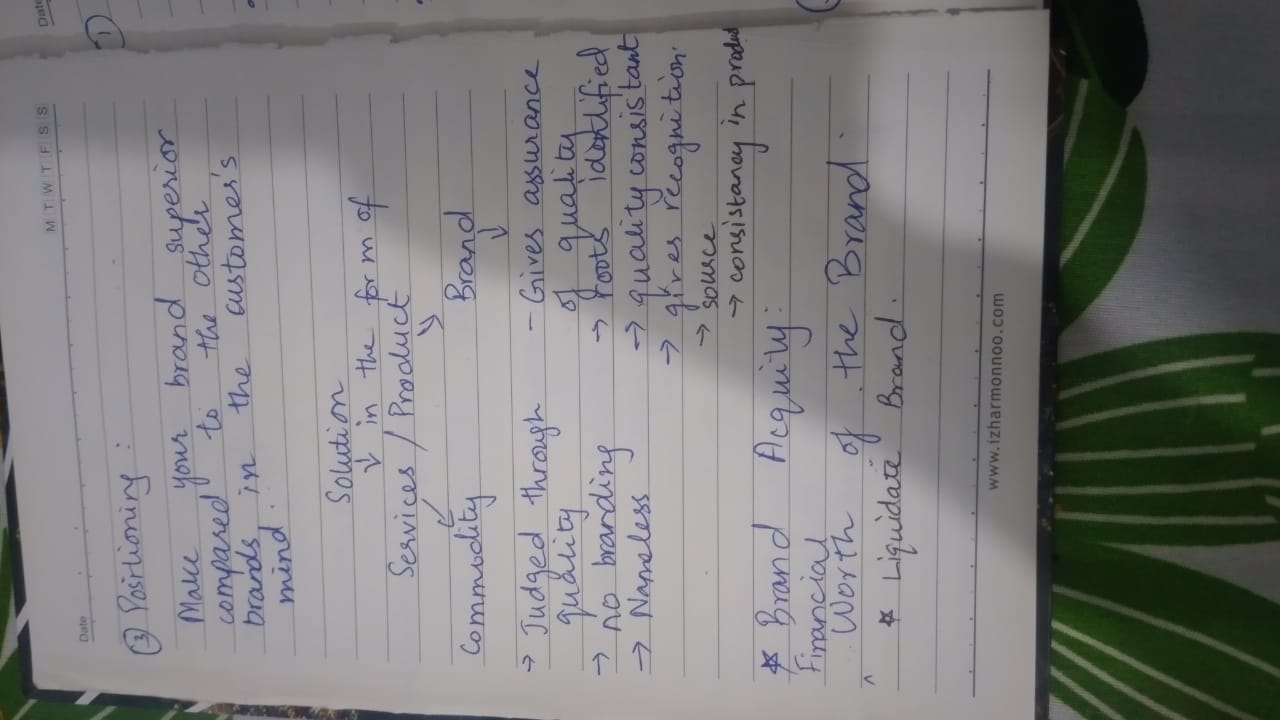 M T W T F S S
Date
Date
③ Positioning :
①
Make your brand superior
compared to the other
brands in the customer's
mind.
Solution
↓ in the form of
Services / Product
Commodity
Brand
→ Judged through
quality
→ no branding
→ Nameless
- Gives assurance
of quality
→ roots identified
→ quality consistant
→ gives recognition.
→ source
→ consistancy in product
* Brand Acquity:
Financial
Worth of the Brand.
^
* Liquidate Brand.
www.izharmonnoo.com